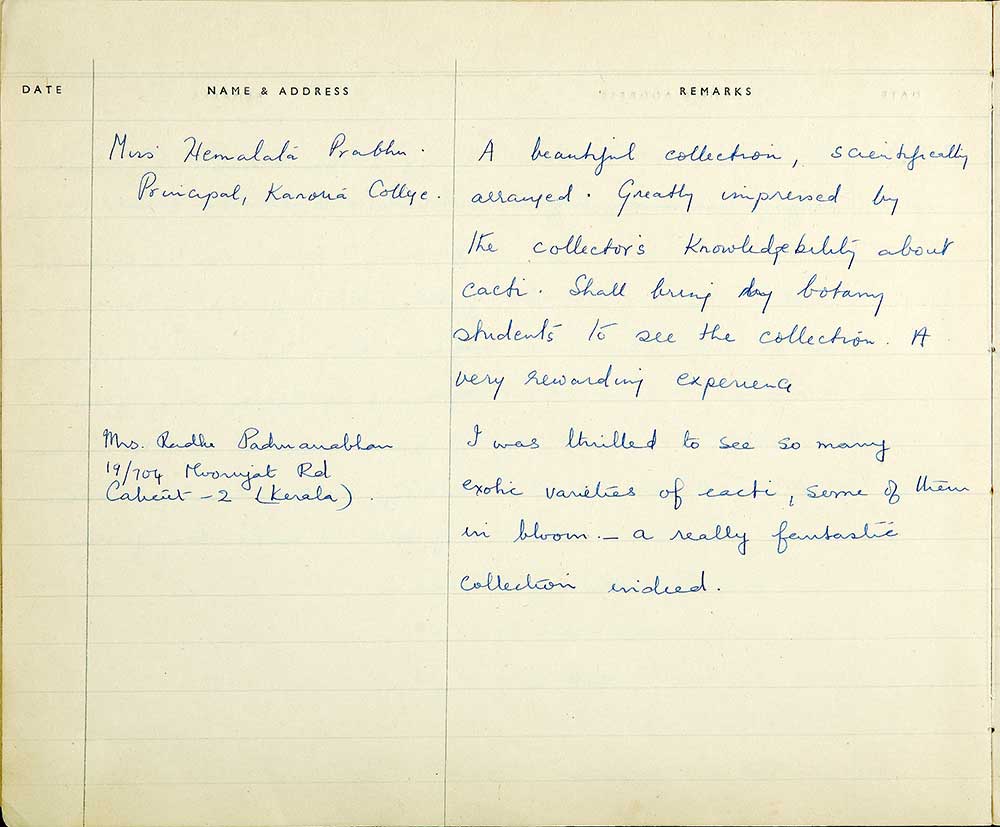 DATE NAME & ADDRESS REMARKS
Miss Hemalata Prabhu.
Principal, Kanoria College.
A beautiful collection, scientifically
arranged. Greatly impressed by
the collector's knowledgebility about
cacti. Shall bring my botany
students to see the collection. A
very rewarding experience
Mrs. Radha Padmanabhan
19/704 Rd
Calicut-2 (Kerala).
I was thrilled to see so many
exotic varieties of cacti, some of them
in bloom. — a really fantastic
collection indeed.